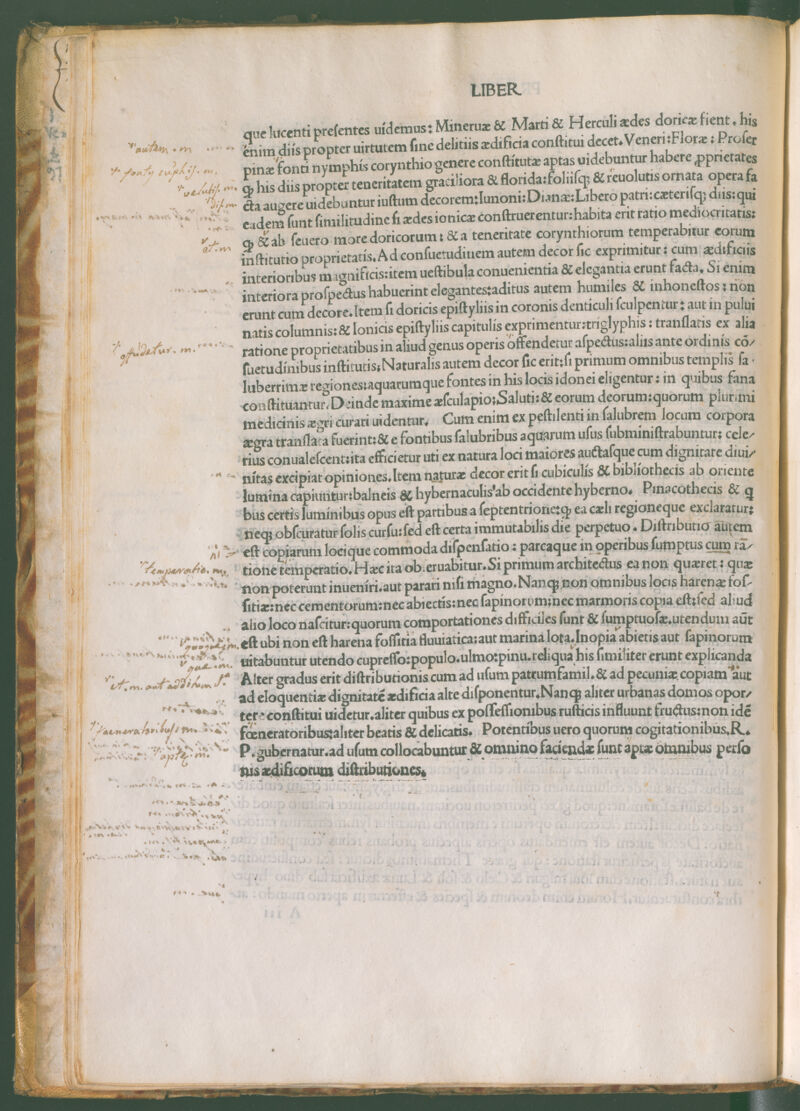 LIBER
que lucenti presentes uidemus: Mineruæ & Marti & Herculi ædes doricæ fient. his
enim diis propter uirtutem sine delitiis ædificia constitui decet. Veneri: Floræ: Proser
pinæ fonti nymphis corynthio genere constitutæ aptas uidebuntur habere ꝓprietates
ꝙ his diis propter teneritatem graciliora & florida: foliisq; & reuolutis ornata opera fa
cta augere uidebuntur iustum decorem: Iunoni: Dianæ: Libero patri: cæterisq; diis: qui
eadem sunt similitudine si ædes ionicæ construerentur: habita erit ratio mediocritatis:
ꝙ & ab seuero more doricorum: & a teneritate corynthiorum temperabitur eorum
institutio proprietatis. Ad consuetudinem autem decor sic exprimitur: cum ædificiis
interioribus magnificis: item uestibula conuenientia & elegantia erunt facta. Si enim
interiora prospectus habuerint elegantes: aditus autem humiles & inhonestos: non
erunt cum decore. Item si doricis epistyliis in coronis denticuli sculpentur: aut in pului
natis columnis: & Ionicis epistyliis capitulis exprimentur: triglyphis: translatis ex alia
ratione proprietatibus in aliud genus operis offendetur aspectus: aliis ante ordinis cō/
suetudinibus institutis. Naturalis autem decor sic erit: si primum omnibus templis sa
luberrimæ regiones: aquarumque fontes in his locis idonei eligentur: in quibus fana
constituantur. Deinde maxime æsculapio: Saluti: & eorum deorum: quorum plurimi
medicinis ægri curari uidentur. Cum enim ex pestilenti in salubrem locum corpora
ægra translata fuerint: & e fontibus salubribus aquarum usus subministrabuntur: cele/
rius conualescent: ita efficietur uti ex natura loci maiores auctasque cum dignitate diui/
nitas excipiat opiniones. Item naturæ decor erit si cubiculis & bibliothecis ab oriente
lumina capiuntur: balneis & hybernaculis ab occidente hyberno. Pinacothecis & q
bus certis luminibus opus est partibus a septentrione: ꝙ ea cæli regioneque exclaratur:
neq; obscuratur solis cursu: sed est certa immutabilis die perpetuo. Distributio autem
est copiarum locique commoda dispensatio: parcaque in operibus sumptus cum rā/
tione temperatio. Hæc ita obseruabitur. Si primum architectus ea non quæret: quæ
non poterunt inueniri. aut parari nisi magno. Nanq; non omnibus locis harenæ fos/
sitiæ: nec cementorum: nec abiectis: nec sapinorum: nec marmoris copia est: sed aliud
alio loco nascitur: quorum comportationes difficiles sunt & sumptuosæ. utendum aūt
est ubi non est harena fossitia fluuiatica: aut marina lota. Inopia abietis aut sapinorum
uitabuntur utendo cupresso: populo. ulmo: pinu. reliqua his similiter erunt explicanda
Alter gradus erit distributionis cum ad usum patrumfamil. & ad pecuniæ copiam aut
ad eloquentiæ dignitatē ædificia alte disponentur. Nanq; aliter urbanas domos opor/
tere constitui uidetur. aliter quibus ex possessionibus rusticis influunt fructus: non idē
fœneratoribus: aliter beatis & delicatis. Potentibus uero quorum cogitationibus. R.
P. gubernatur. ad usum collocabuntur & omnino faciendæ sunt aptæ omnibus perso
nis ædificorum distributiones.
autem. m.
offēdetur. m.
temperatio. m.